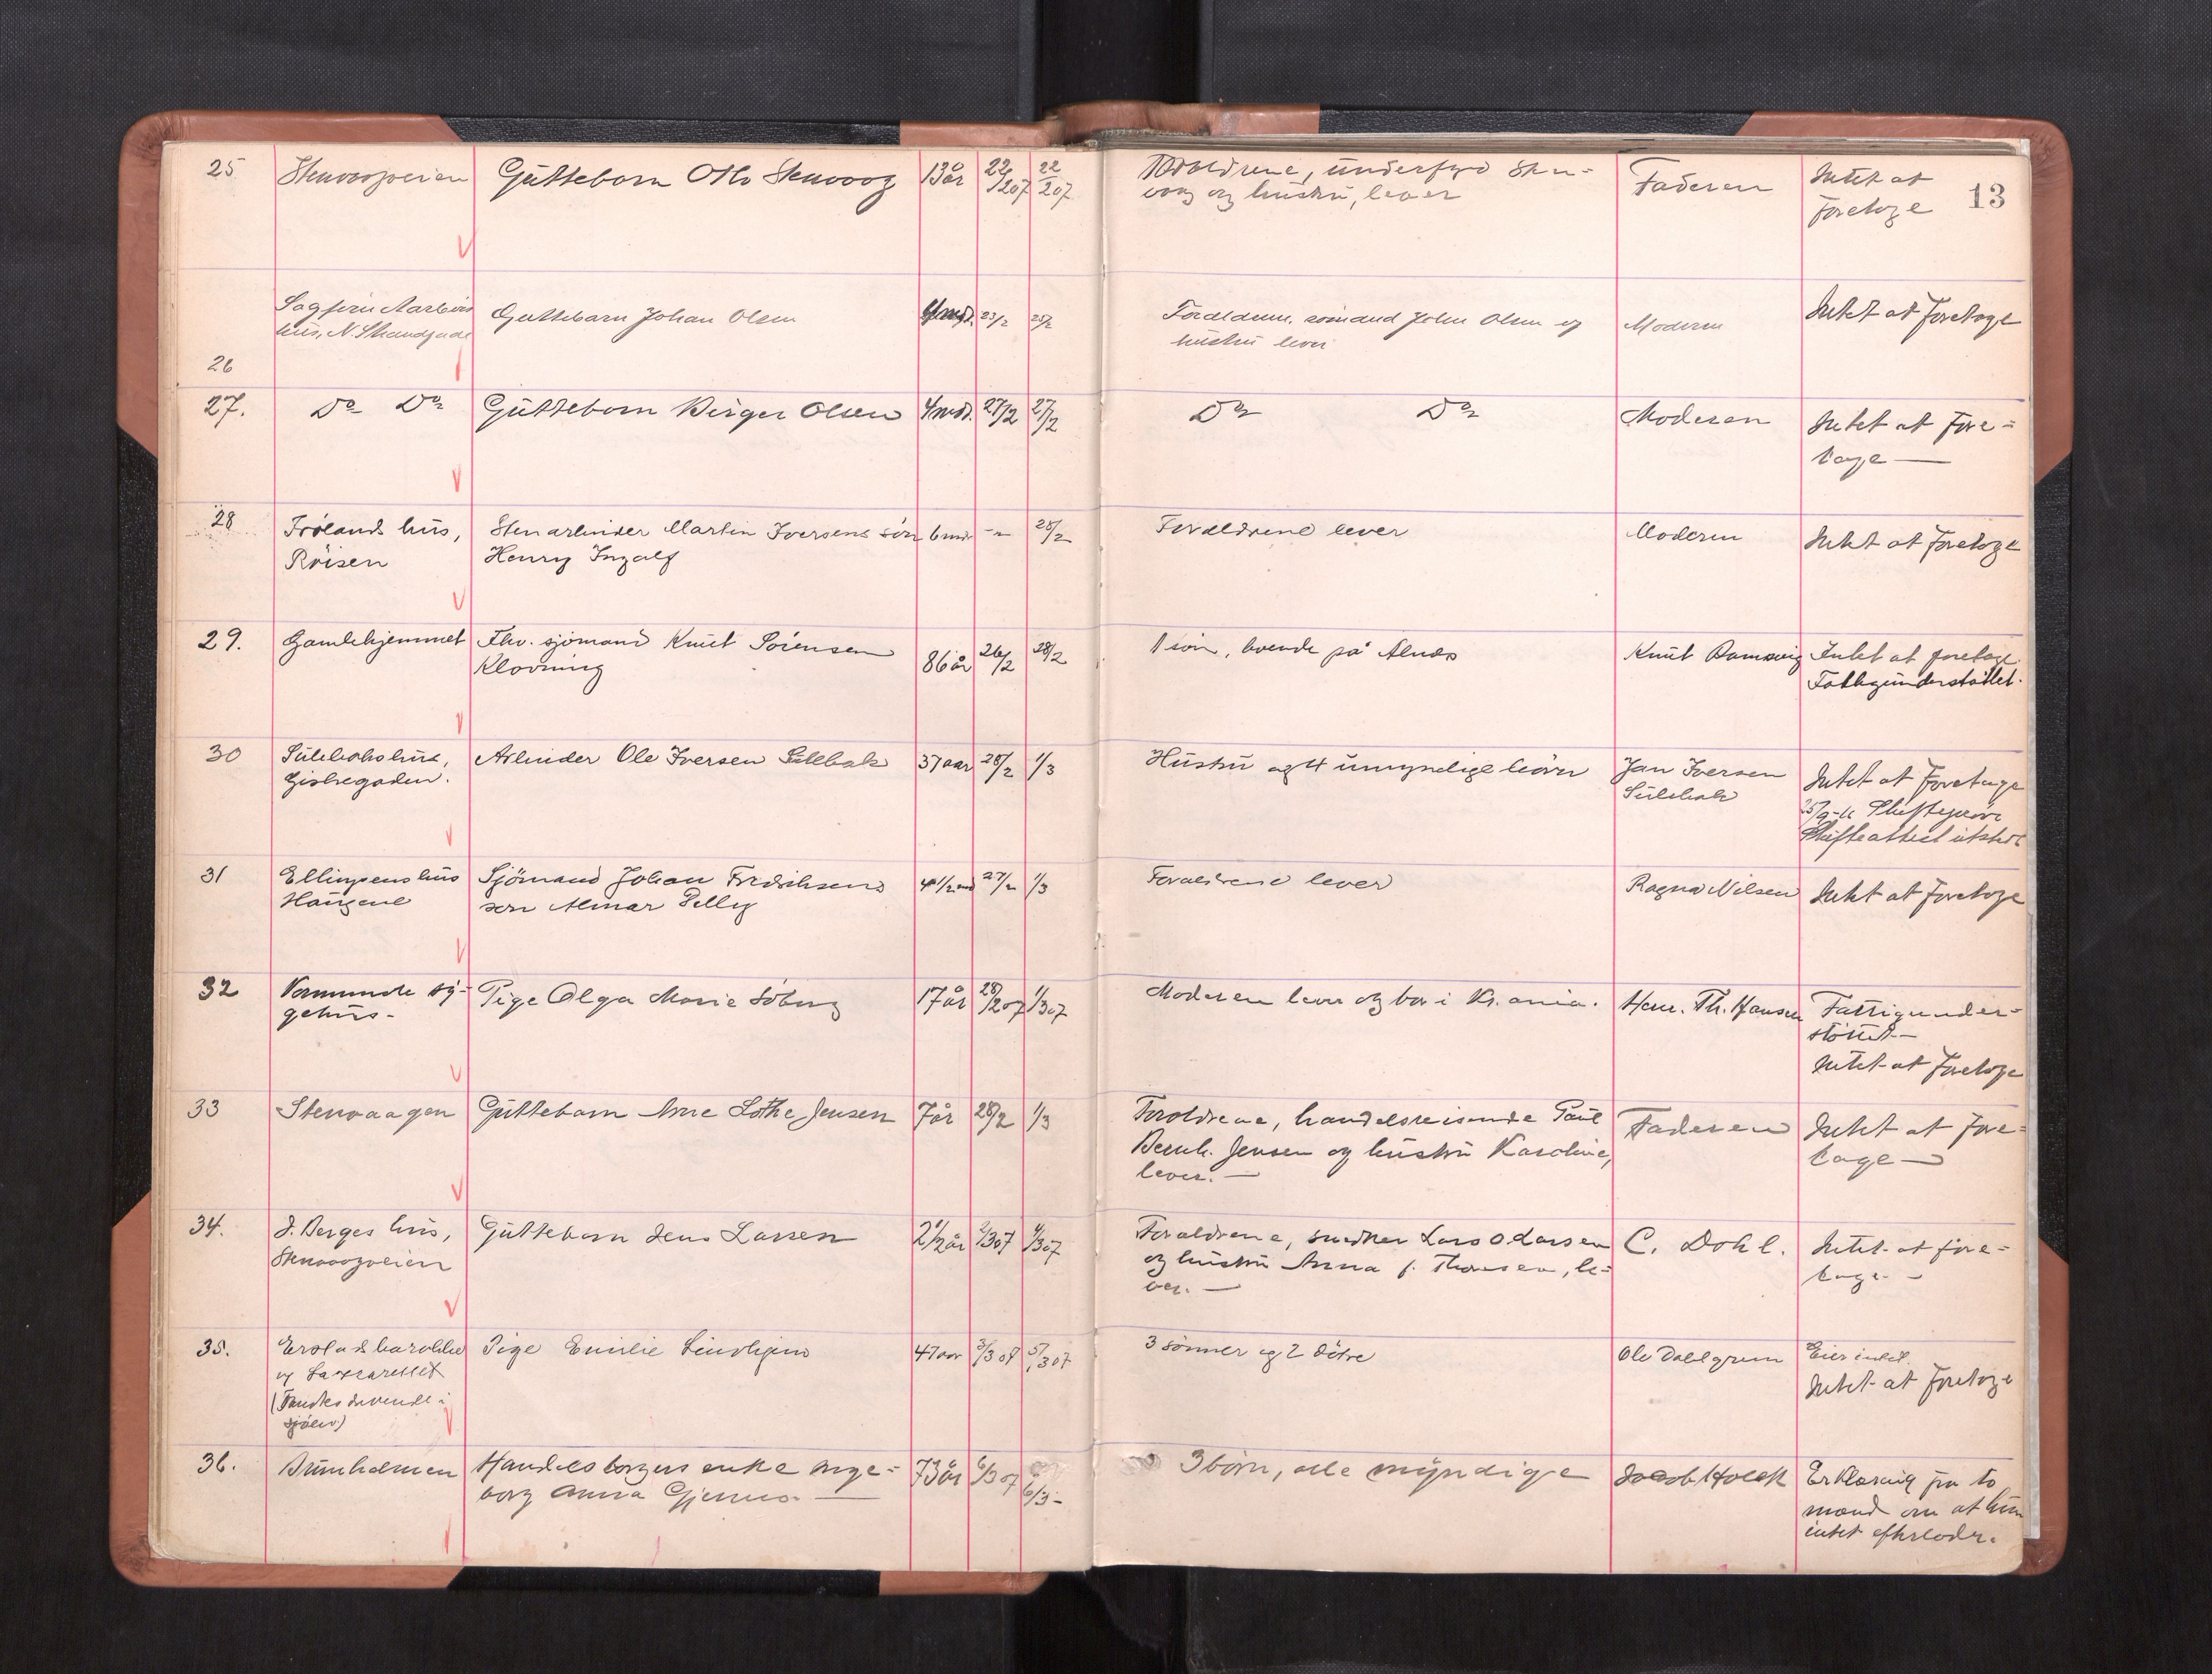 13
25 Stenvaagveien Gutteborn Otto Stenvaag 13 år 22/2 07 22/2 07 Foreldrene, underfyrd Sten-
vaag og hustru, lever Faderen Intet at
foretage
Sagfører Aarhus
hus, N. Strandgade Guttebarn Johan Olsen 4 mdr. 23/2 25/2 Forældrene, sømand John Olsen og
hustru lever Moderen Intet at foretage
26
27. Do Do Gutteborn Birger Olsen 4 mdr. 27/2 27/2 Do Do Moderen Intet at fore-
tage —
28 Frølands hus,
Röisen Stenarbeider Martin Iversens søn
Henry Ingolf 6 mdr - " 28/2 Foreldrene lever Moderen Intet at foretage
29. Gamlehjemmet Fhv. sjømand Knut Sørensen
Klovning 86 år 26/2 28/2 1 søn, boende på Alnes Knut Intet at foretage.
Fattigunderstøttet.
30 Sulebakshus,
Giskegaden. Arbeider Ole Iversen Sulebak 37 aar 28/2 1/3 Hustru og 4 umyndige børn Jan Iversen
Sulebak Intet at foretage
25/9-11 Skifteprøve
Skifteattest utstedt
31 Ellingsens hus
Haugene Sjömand Johan Fredriksens
søn Almar Pelly 4 1/2 md 27/2 1/3 Foreldrene lever Ragna Nilsen Intet at foretage
32 Normunde sy-
gehus - Pige Olga Marie Söberg 17 år 28/2 07 1/3 07 Moderen lever og bor i Kr.ania. Henr. Th. Hansen Fattigunder-
støttet -
Intet at foretage
33 Stenvaagen Gutteborn Arne Lothe Jensen 7 år 28/2 1/3 Foreldrene, handelsreisende Paul
Bernh. Jensen og hustru Karoline,
lever. — Faderen Intet at fore-
tage —
34. J. Berges hus,
Stenvaagveien Gutteborn Jens Larsen 2 1/2 år 2/3 07 4/3 07 Foreldrene, snedker Lars O Larsen
og hustru Anna f. Thoresen, le-
ver. — C. Dahl. Intet at fore-
tage -
35. barakke
og Lazarettet
(Fandtes drvende i
sjøen) Pige Emilie Lindhjem 47 aar 3/3 07 5/3 07 3 sønner og 2 døtre Ole Dahlgren Eier intet.
Intet at foretage
36. Bunholmen Handelsborgers enke Inge-
borg Anna Gjerues — 73 år 6/3 07 6/3 - 3 børn, alle myndige Jacob Holck Erklæring fra to
mænd om at hun
intet efterlader.